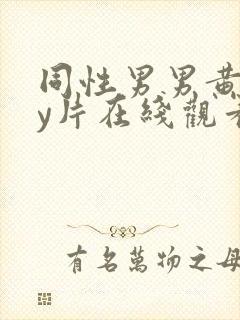 同性男男黄
y片在綫觀看
有名萬物之母